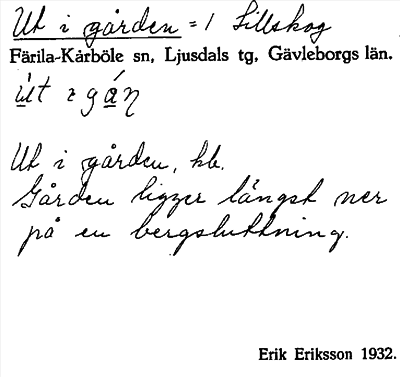 Ut i gården = 1 Lillskog
Färila-Kårböle sn, Ljusdals tg, Gävleborgs län.
Ut i gården, hb.
Gården ligger längst ner
på en bergsluttning.
Erik Eriksson 1932.